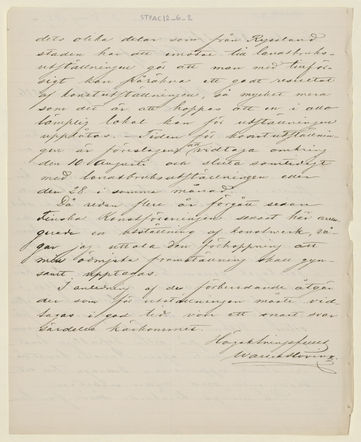 STFAC12_6_2
dets olika delar som från Ryssland
staden har att emotse till landtbruks-
utställningen gör att man med
kan påräkna ett godt resultat
af konstutställningen, så mycket mera
som det är att hoppas att en i allo
lämplig lokal kan för utställningen
upplåtas. - Tiden för konstutställnin-
gen är föreslagen att vidtaga omkring
den 10 Augusti och sluta samtidigt
med landtbruksutställningen eller
den 28 i samma månad.
Då redan flere år förgått sedan
Finska Konstföreningen senast här
en utställning af konstverk, vå-
gar jag uttala den förhoppning att
min ödmjuka framställning skall gyn-
samt upptagas.
I anledning af de förberedande åtgär
der som för utställningen måste vid-
tagas i god tid, vore ett snart svar
särdeles kärkommet.
Högaktningsfullt